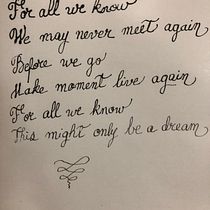 For all we know
We may never meet again
Before we go
Make moment live again
For all we know
This might only be a dream